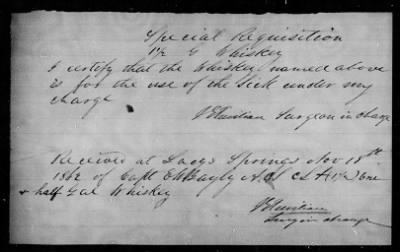 Special Requisition
1½ G Whiskey
I certify that the Whiskey named above
is for the use of the Sick under my
charge
Surgeon in charge
Received at Lacys Springs Nov 18th
1862 of Capt E W Bayly A.C.S. C.S.A. (1½) One
& half Gal Whiskey
Surg in charge